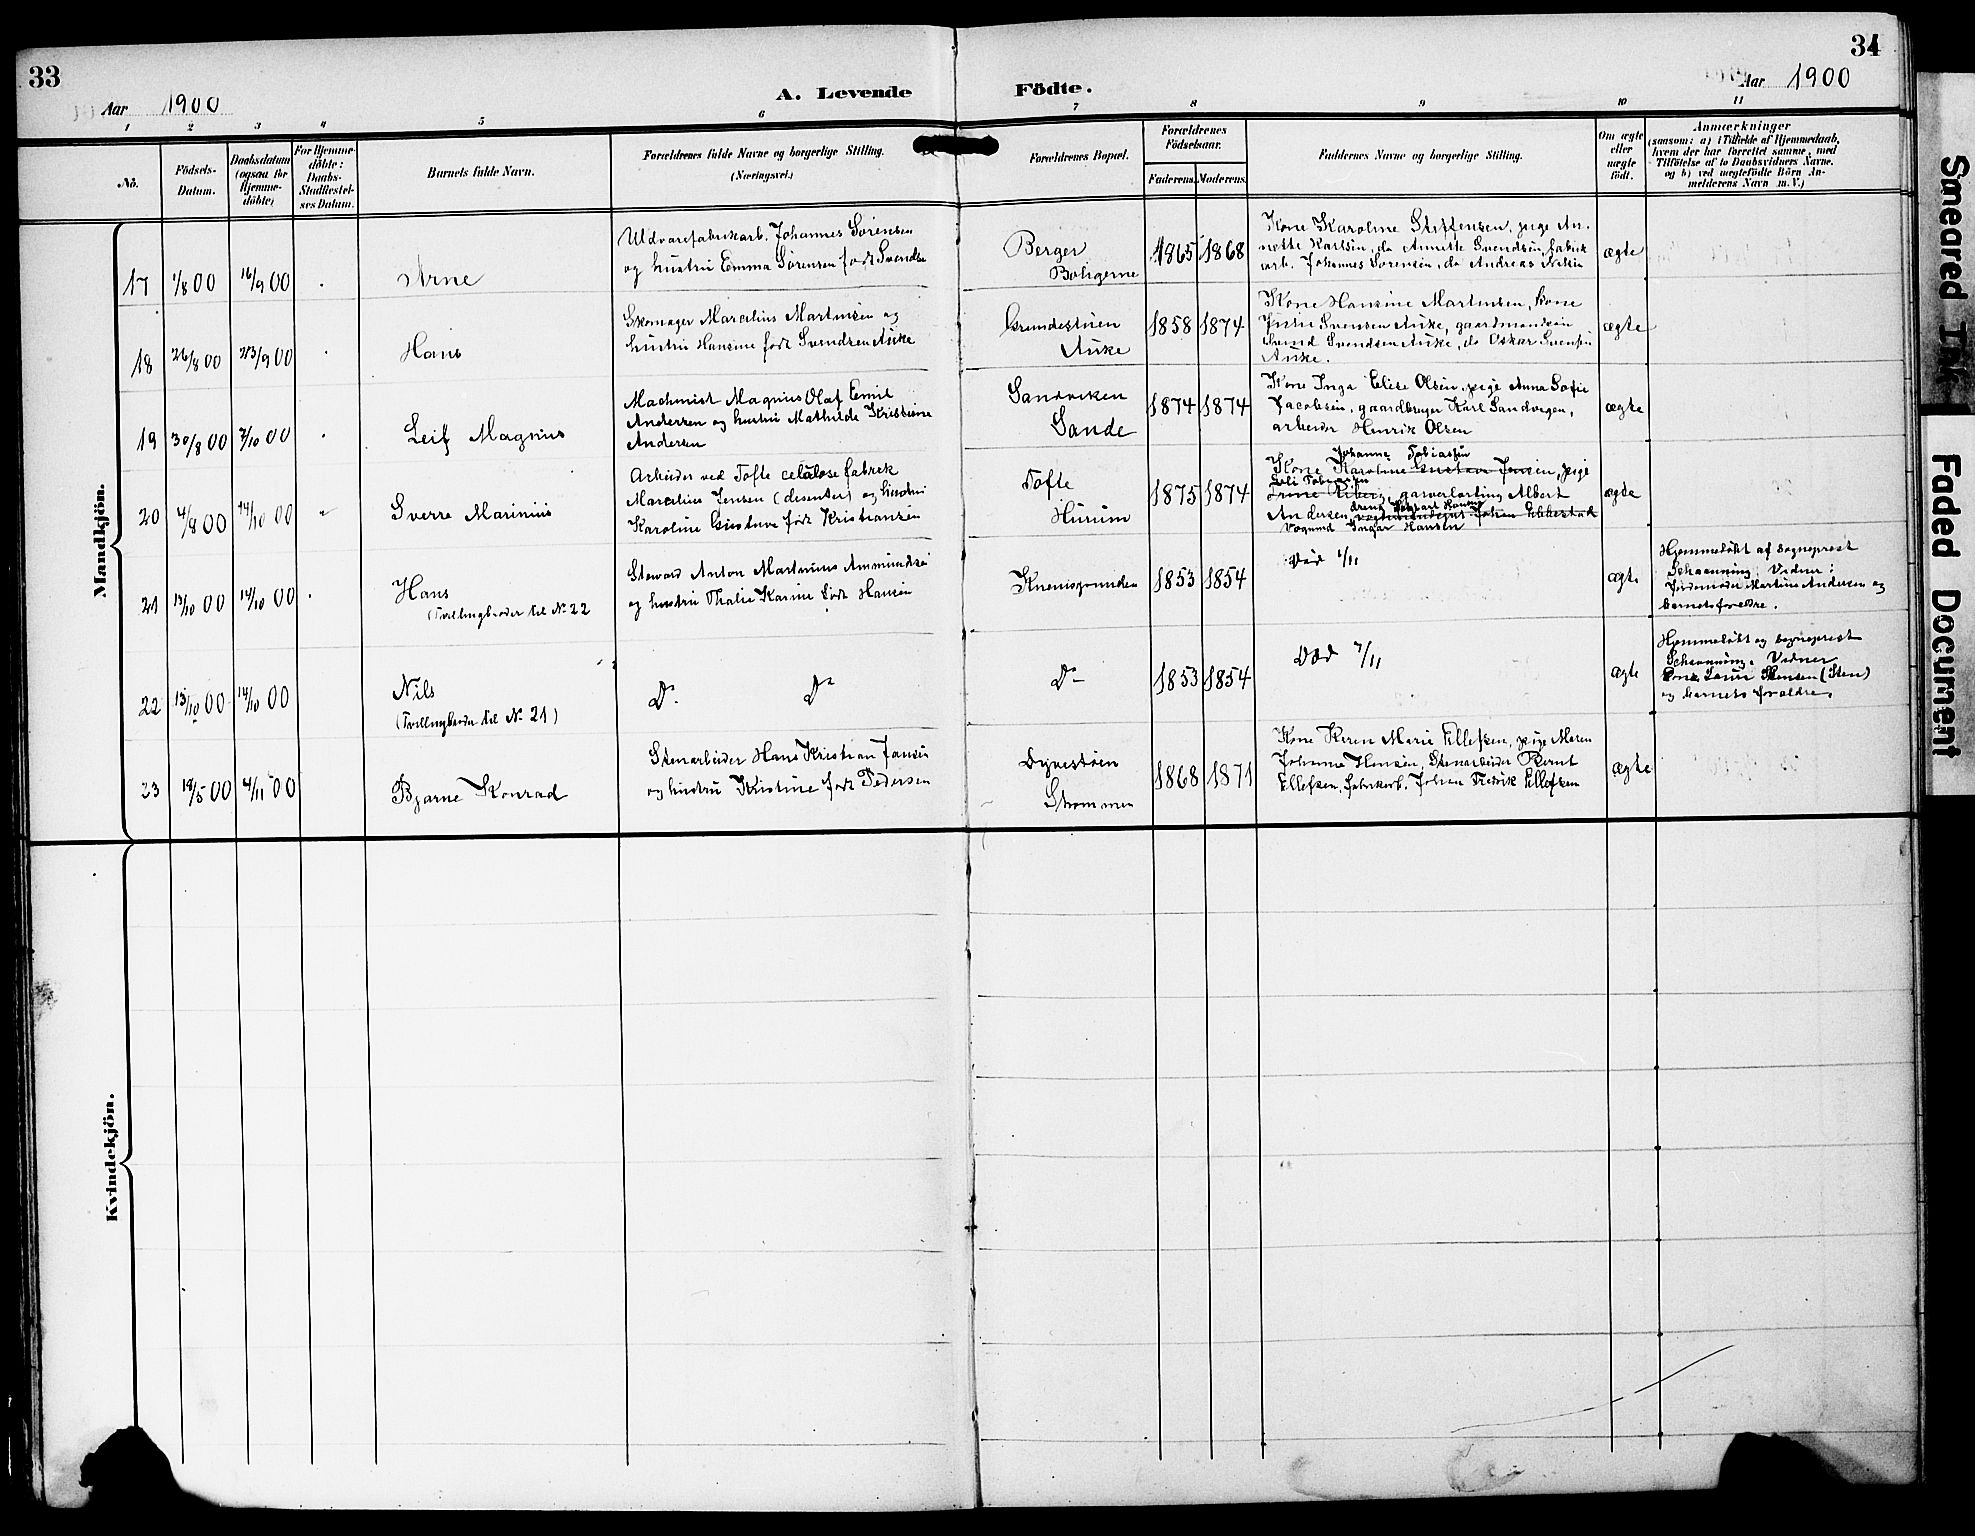 33
Aar 1900
A. Levende
Födte.
34
Aar 1900
1 2 3 4 5 6 7 8 9 10 11
No.
Födsels-
Datum.
Daabsdatum
(ogsaa for
Hjemme-
döbte)
For Hjemme-
döbte:
Daabs-
Stadfæstel-
ses Datum.
Barnets fulde Navn.
Forældrenes fulde Navne og borgerlige Stilling.
(Næringsvei.)
Forældrenes Bopæl.
Forældrenes
Födselsaar.
Faderens.
Moderens.
Faddernes Navne og borgerlige Stilling.
Om ægte
eller
uægte
födt.
Anmærkninger
(saasom: a) i Tilfælde af Hjemmedaab,
hvem der har forrettet samme, med
Tilföielse af to Daabsvidners Navne.
og b) ved uægtefödte Börn An-
melderens Navn m. V.)
Mandkjön.
17
1/8 00
16/9 00
Arne
Uldvarefabrikarb. Johannes Sörensen
og hustru Emma Sørensen födt Svendsen
Berger
Boligerne
1865
1868
Kone Karoline Steffensen, pige An-
nette Karlsen, do Annette Svendsen, fabrik
arb. Johannes Sørensen, do Andreas Nilsen
ægte
18
26/8 00
23/9 00
Hans
Skomager Marcelius Martinsen og
hustru Hansine födt Svendsen Auke
Grindestuen
Auke
1858
1874
Kone Hansine Martinsen, kone
Svensen Auke, gaardmandsön
Svend Svendsen Auke, do Oskar Svensen
Auke.
ægte
19
30/8 00
7/10 00
Leif Magnus
Machinist Magnus Olaf Emil
Andersen og hustru Mathilde Kristine
Andersen
Sandviken
Sande
1874
1874
Kone Inga Elise Olsen, pige Anna Sofie
Jacobsen, gaardbruger Karl Sandvigen,
arbeider Henrik Olsen
ægte
20
4/8 00
14/10 00
Sverre Marinius
Arbeider ved Tofte celulose fabrik
Marcelius Jensen (desenter) og hustru
Karoline Gustava födt Kristiansen
Tofte
Hurum
1875
1874
Johanne Tobiassen
Kone Karoline Gustava Jensen, pige
garverlærling Albert
Andersen, Johan Ebbestad
Ingar Hansen
ægte
21
13/10 00
14/10 00
Hans
(Tvillingbroder til No 22
Steward Anton Martinius Ammundsen
og hustru Thalie Karine født Hansen
Knemsgrunden
1853
1854
Död 1/11
ægte
Hjemmedöbt af sogneprest
Schanning Vidner:
Jordmoder Martine Andersen og
barnets forældre.
22
13/10 00
14/10 00
Nils
(Tvillingbroder til No 21)
Do Do
Do
1853
1854
Död 7/11
ægte
Hjemmedöbt og sogneprest
Schanning. Vidner
Hansen (Sten)
og barnets forældre.
23
18/5 00
4/11 00
Bjarne Konrad
Stenarbeider Hans Kristian Jansen
og hustru Kristine född Pedersen
Dyvestöen
Strömmen
1868
1871
Kone Karen Marie Ellefsen, pige Maren
Johanne Hansen, Stenarbeider Bernt
Ellefsen, fabrikarb. Johan Fredrik Ellefsen
ægte
Kvindekjön.
Smeared Ink
Faded Document